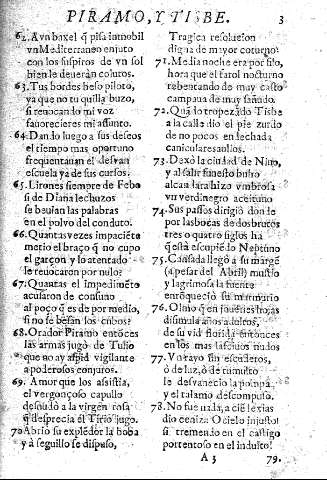 PIRAMO, Y TISBE. 3
62. A vn baxel q̃ pisa inmobil
vn Mediterraneo enjuto
con los suspiros de vn sol
bien le deuerán coluros.
63. Tus bordes beso piloto,
ya que no tu quilla buzo,
si reuocando mi voz
fauorecieres mi assunto.
64. Dando luego a sus deseos
el tiempo mas oportuno
freqüentauan el desvan
escuela ya de sus cursos.
65. Lirones siempre de Febo
si de Diana lechuzos
se beuian las palabras
en el polvo del conduto.
66. Quantas vezes impaciẽte
metio el braço q̃ no cupo
el garçon y lo atentado
le reuocaron por nulo?
67. Quantas el impedimẽto
acusaron de consuno
al poço q̃ es de por medio,
si no se besan los cubos?
68. Orador Piramo entõces
las armas jugó de Tulio
que no ay aspid vigilante
a poderosos conjuros.
69. Amor que los assistia,
el vergonçoso capullo
desnudó a la virgen rosa
q̃ desprecia el Tirio jugo.
70. Abrio su esplẽdor la boba
y a seguillo se dispuso,
Tragica resolucion
digna de mayor coturno.
71. Media noche era por filo,
hora que el farol nocturno
rebentando de muy casto
campaua de muy sañudo.
72. Quãdo tropezãdo Tisbe
a la calle dio el pie zurdo
de no pocos endechada
caniculares aullos.
73. Dexò la ciudad de Nino,
y al salir funesto buho
alcandara hizo vmbrosa
vn verdinegro aceituno
74. Sus passos dirigió donde
por las bocas de dos brutos
tres o quatro siglos ha
q̃ està escupiẽdo Neptuno
75. Cansada llegó a su margẽ
(a pesar del Abril) mustio
y lagrimosa la fuente
enrõqueció su murmurio
76. Olmo q̃ en jouenes hojas
disimula años adultos,
de su vid florida entonces
en los mas lasciuos nudos
77. Vn rayo sin escuderos,
ò de luz, ò de tumulto
le desvanecio la pompa,
y el talamo descompuso.
78. No fue nada, a ciẽ lexias
dio ceniza. O cielo injusto!
si tremendo en el castigo
portentoso en el indulto!
A 3 79.